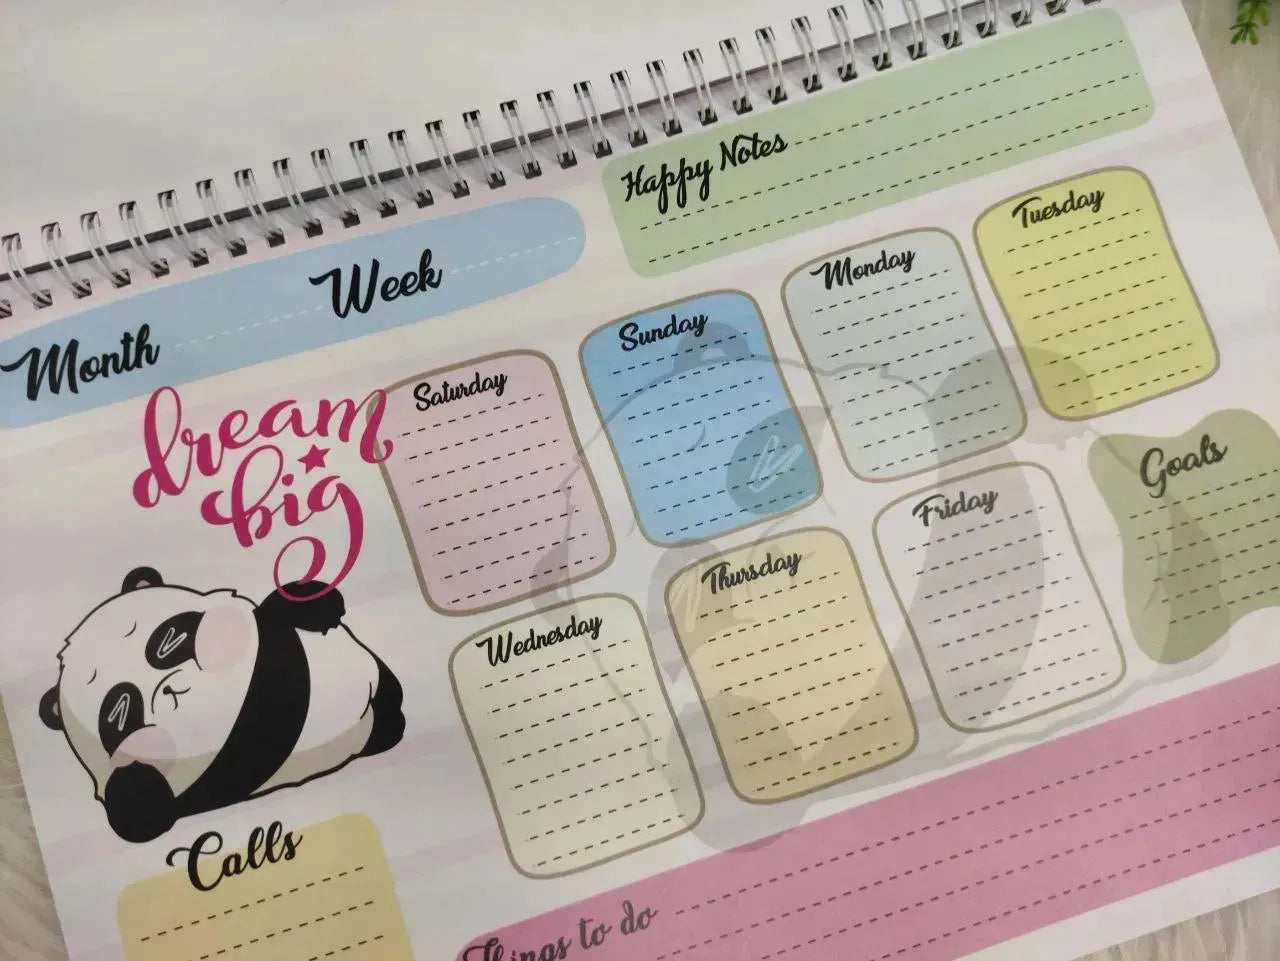 Happy Notes
Month Week
dream
big
Saturday
Sunday
Monday
Tuesday
Wednesday
Thursday
Friday
Goals
Calls
Things to do